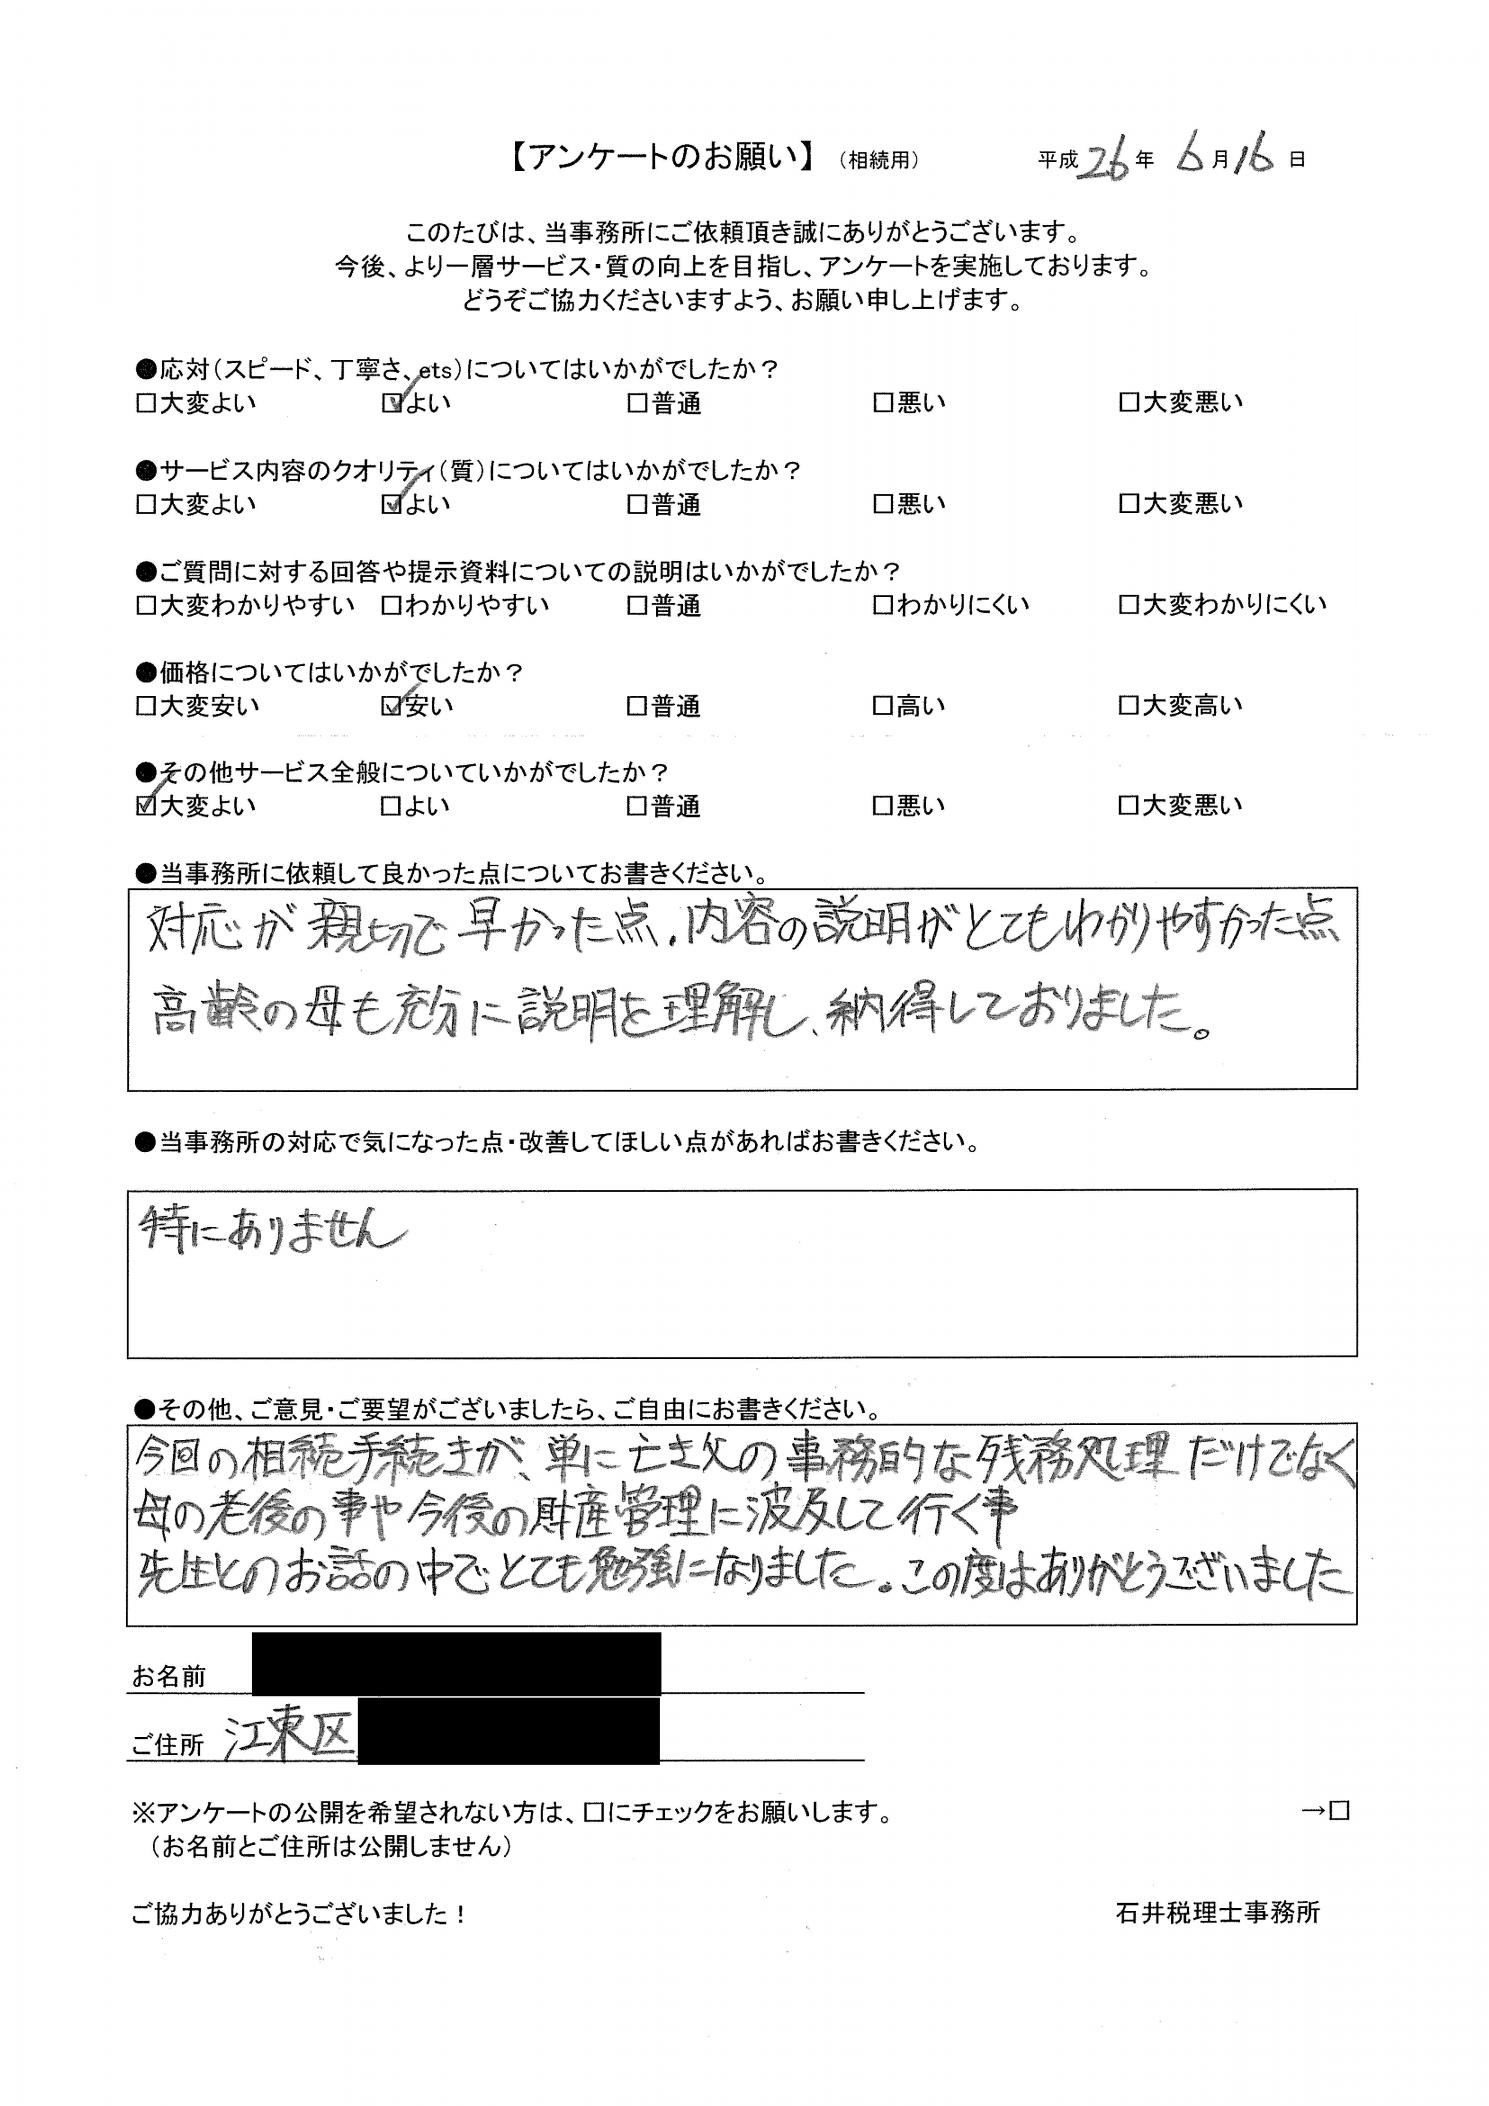 【アンケートのお願い】（相続用） 平成26年 6月16日
このたびは、当事務所にご依頼頂き誠にありがとうございます。
今後、より一層サービス・質の向上を目指し、アンケートを実施しております。
どうぞご協力くださいますよう、お願い申し上げます。
●応対（スピード、丁寧さ、ets）についてはいかがでしたか？
□大変よい ☑よい □普通 □悪い □大変悪い
●サービス内容のクオリティ（質）についてはいかがでしたか？
□大変よい ☑よい □普通 □悪い □大変悪い
●ご質問に対する回答や提示資料についての説明はいかがでしたか？
□大変わかりやすい □わかりやすい □普通 □わかりにくい □大変わかりにくい
●価格についてはいかがでしたか？
□大変安い ☑安い □普通 □高い □大変高い
●その他サービス全般についていかがでしたか？
☑大変よい □よい □普通 □悪い □大変悪い
●当事務所に依頼して良かった点についてお書きください。
対応が親切で早かった点、内容の説明がとてもわかりやすかった点
高齢の母も充分に説明を理解し、納得しておりました。
●当事務所の対応で気になった点・改善してほしい点があればお書きください。
特にありません
●その他、ご意見・ご要望がございましたら、ご自由にお書きください。
今回の相続手続きが、単に亡き父の事務的な残務処理だけでなく
母の老後の事や今後の財産管理に波及して行く事
先生とのお話の中でとても勉強になりました。この度はありがとうございました
お名前
ご住所 江東区
※アンケートの公開を希望されない方は、□にチェックをお願いします。 →□
（お名前とご住所は公開しません）
ご協力ありがとうございました！ 石井税理士事務所